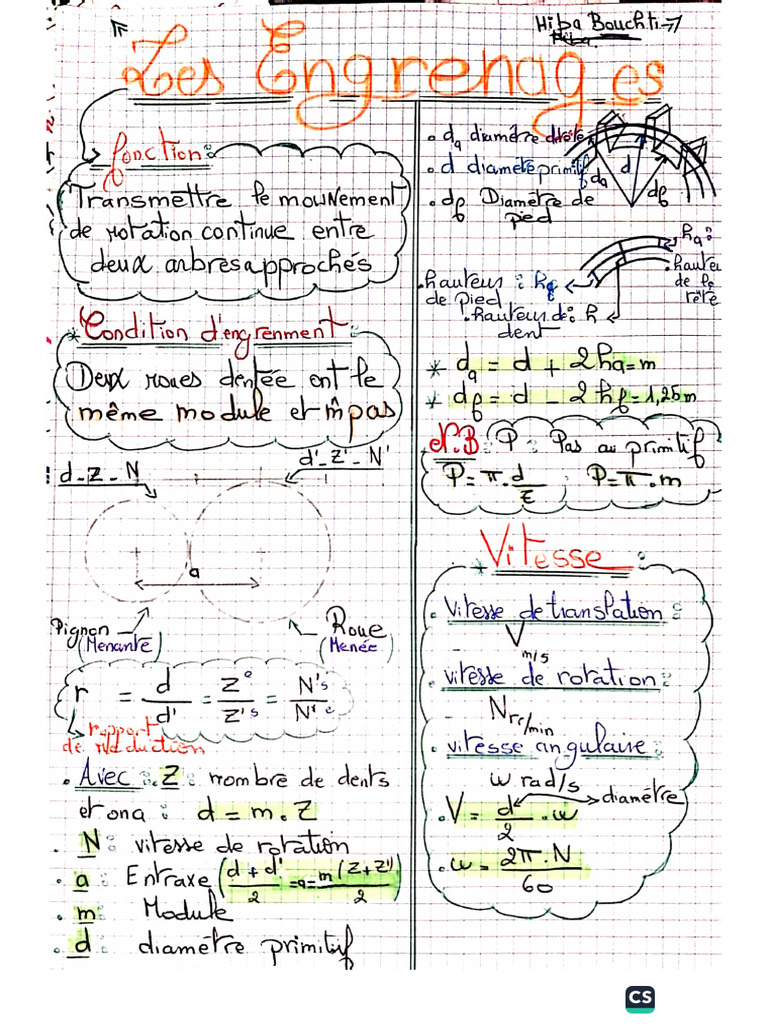 Hiba Bouchti
Les Engrenages
fonction:
Transmettre le mouvement
de rotation continue entre
deux arbres approchés
* Condition d'engrenment:
Deux roues dentée ont le
même module et m̂ pas
d_Z_N
d'_Z'_N'
a
Pignon
(Menante)
Roue
(Menée)
r = d/d' = Z^e/Z'^s = N's/N'^e
rapport
de réduction
. Avec: Z: nombre de dents
et on a: d = m.Z
. N: vitesse de rotation
. a: Entraxe ((d+d')/2 = a = m(Z+Z')/2)
. m: Module
. d: diamétre primitif
. da diamétre de tête
. d diamétre primitif
. df Diamétre de
pied
da
d
df
ha:
. hauteur
de pied
: hf
. hauteur
de te
tête
. hauteur de: h
dent
* da = d + 2ha = m
* df = d - 2hf = 1,25m
N.B: P: Pas au primitif
P = π.d/Z ; P = π.m
* Vitesse:
. Vitesse de translation:
_ V m/s
. vitesse de rotation:
_ N tr/min
. vitesse angulaire:
w rad/s
diamétre
. V = d/2 . w
. w = 2π.N/60
CS